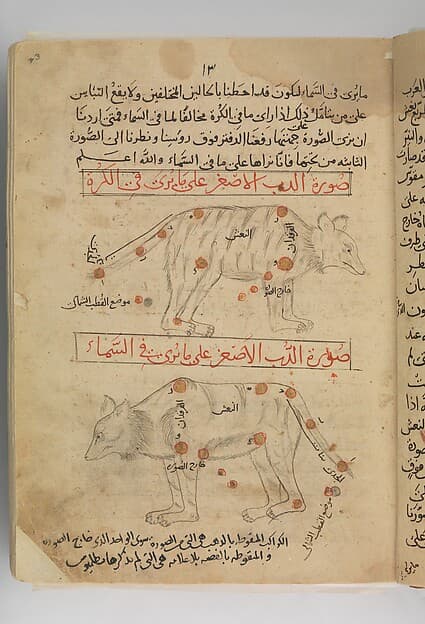 ١٣
ما يرى في السماء ليكون قد احطنا بالحالين المختلفين ولا يقع التباس
على من يتأمل ذلك اذا راى ما في الكرة مخالفا لما في السماء فمتى اردنا
ان نرى الصورة على جهتها رفعنا الدفتر فوق روسنا ونظرنا الى الصورة
الثانية من تحتها فانا نراها على ما في السماء والله اعلم
صورة الدب الاصغر على ما يرى في الكرة
النعش
الفرقدان
الجدي
خارج الصورة
موضع القطب الشمالي
صورة الدب الاصغر على ما يرى في السماء
النعش
الفرقدان
خارج الصورة
الجدي
موضع القطب الشمالي
الكواكب المنقوطة بالذهب هي التي من الصورة سوى الواحد الذي خارج الصورة
و المنقوطة بالفضة بلا علامة هي التي لم يذكرها بطلميوس